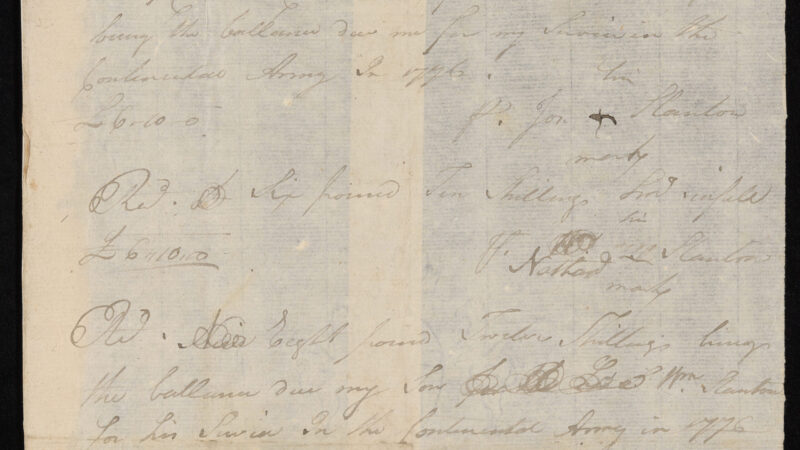 being the ballance due me for my Service in the
Continental Army In 1776.
his
£6-10-0 P. Jon Stanton
mark
Recd. Six pound Ten Shillings
his
£6-10-0 P. Nathan Stanton
mark
Recd. Eight pound Twelve Shillings being
the ballance due my Son Wm. Stanton
for his Service In the Continental Army in 1776